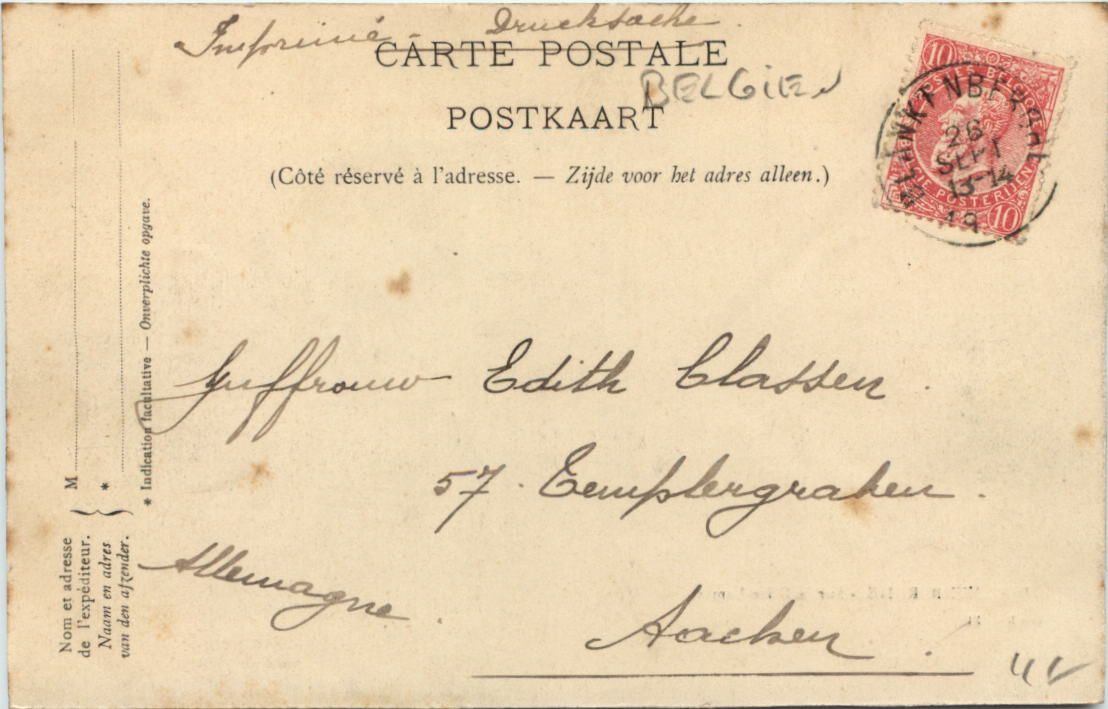 Imprimé - Drucksache.
CARTE POSTALE
BELGIEN
POSTKAART
(Côté réservé à l'adresse. — Zijde voor het adres alleen.)
10
POSTES BELGIQUE
BELGIE POSTERIJEN
10
BLANKENBERGHE
26
SEPT
13-14
19
Juffrouw Edith Classen.
57. Templergraben.
Allemagne.
Aachen.
Nom et adresse
de l'expéditeur.
Naam en adres
van den afzender.
M
*
* Indication facultative — Onverplichte opgave.